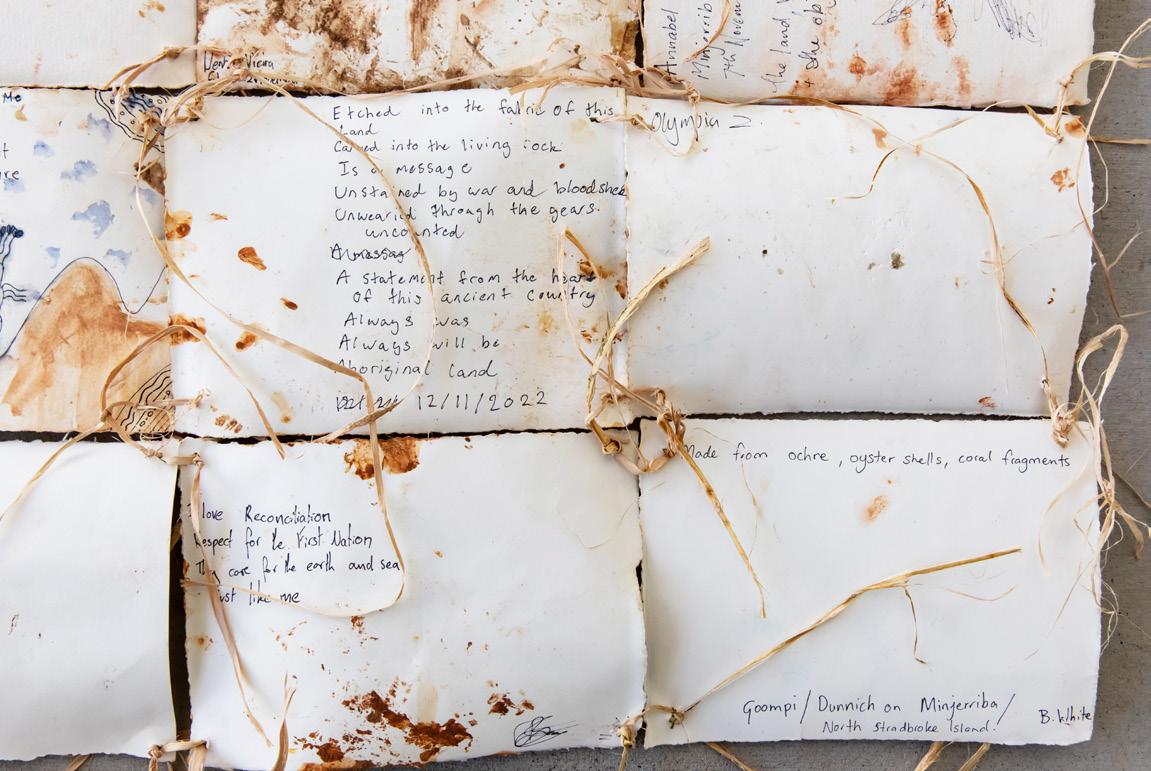 Me
Annabel
7th Novem
the land
Etched into the fabric of this
Land
Carved into the living rock
Is a message
Unstained by war and bloodshed
Unwearied through the years.
uncounted
A statement from the heart
of this ancient country
Always was
Always will be
Aboriginal land
12/11/2022
Olympia 2
love Reconciliation
Respect for the First Nation
The care for the earth and sea
Just like me
Made from ochre, oyster shells, coral fragments
Goompi/Dunnich on Minjerriba/
North Stradbroke Island.
B. White